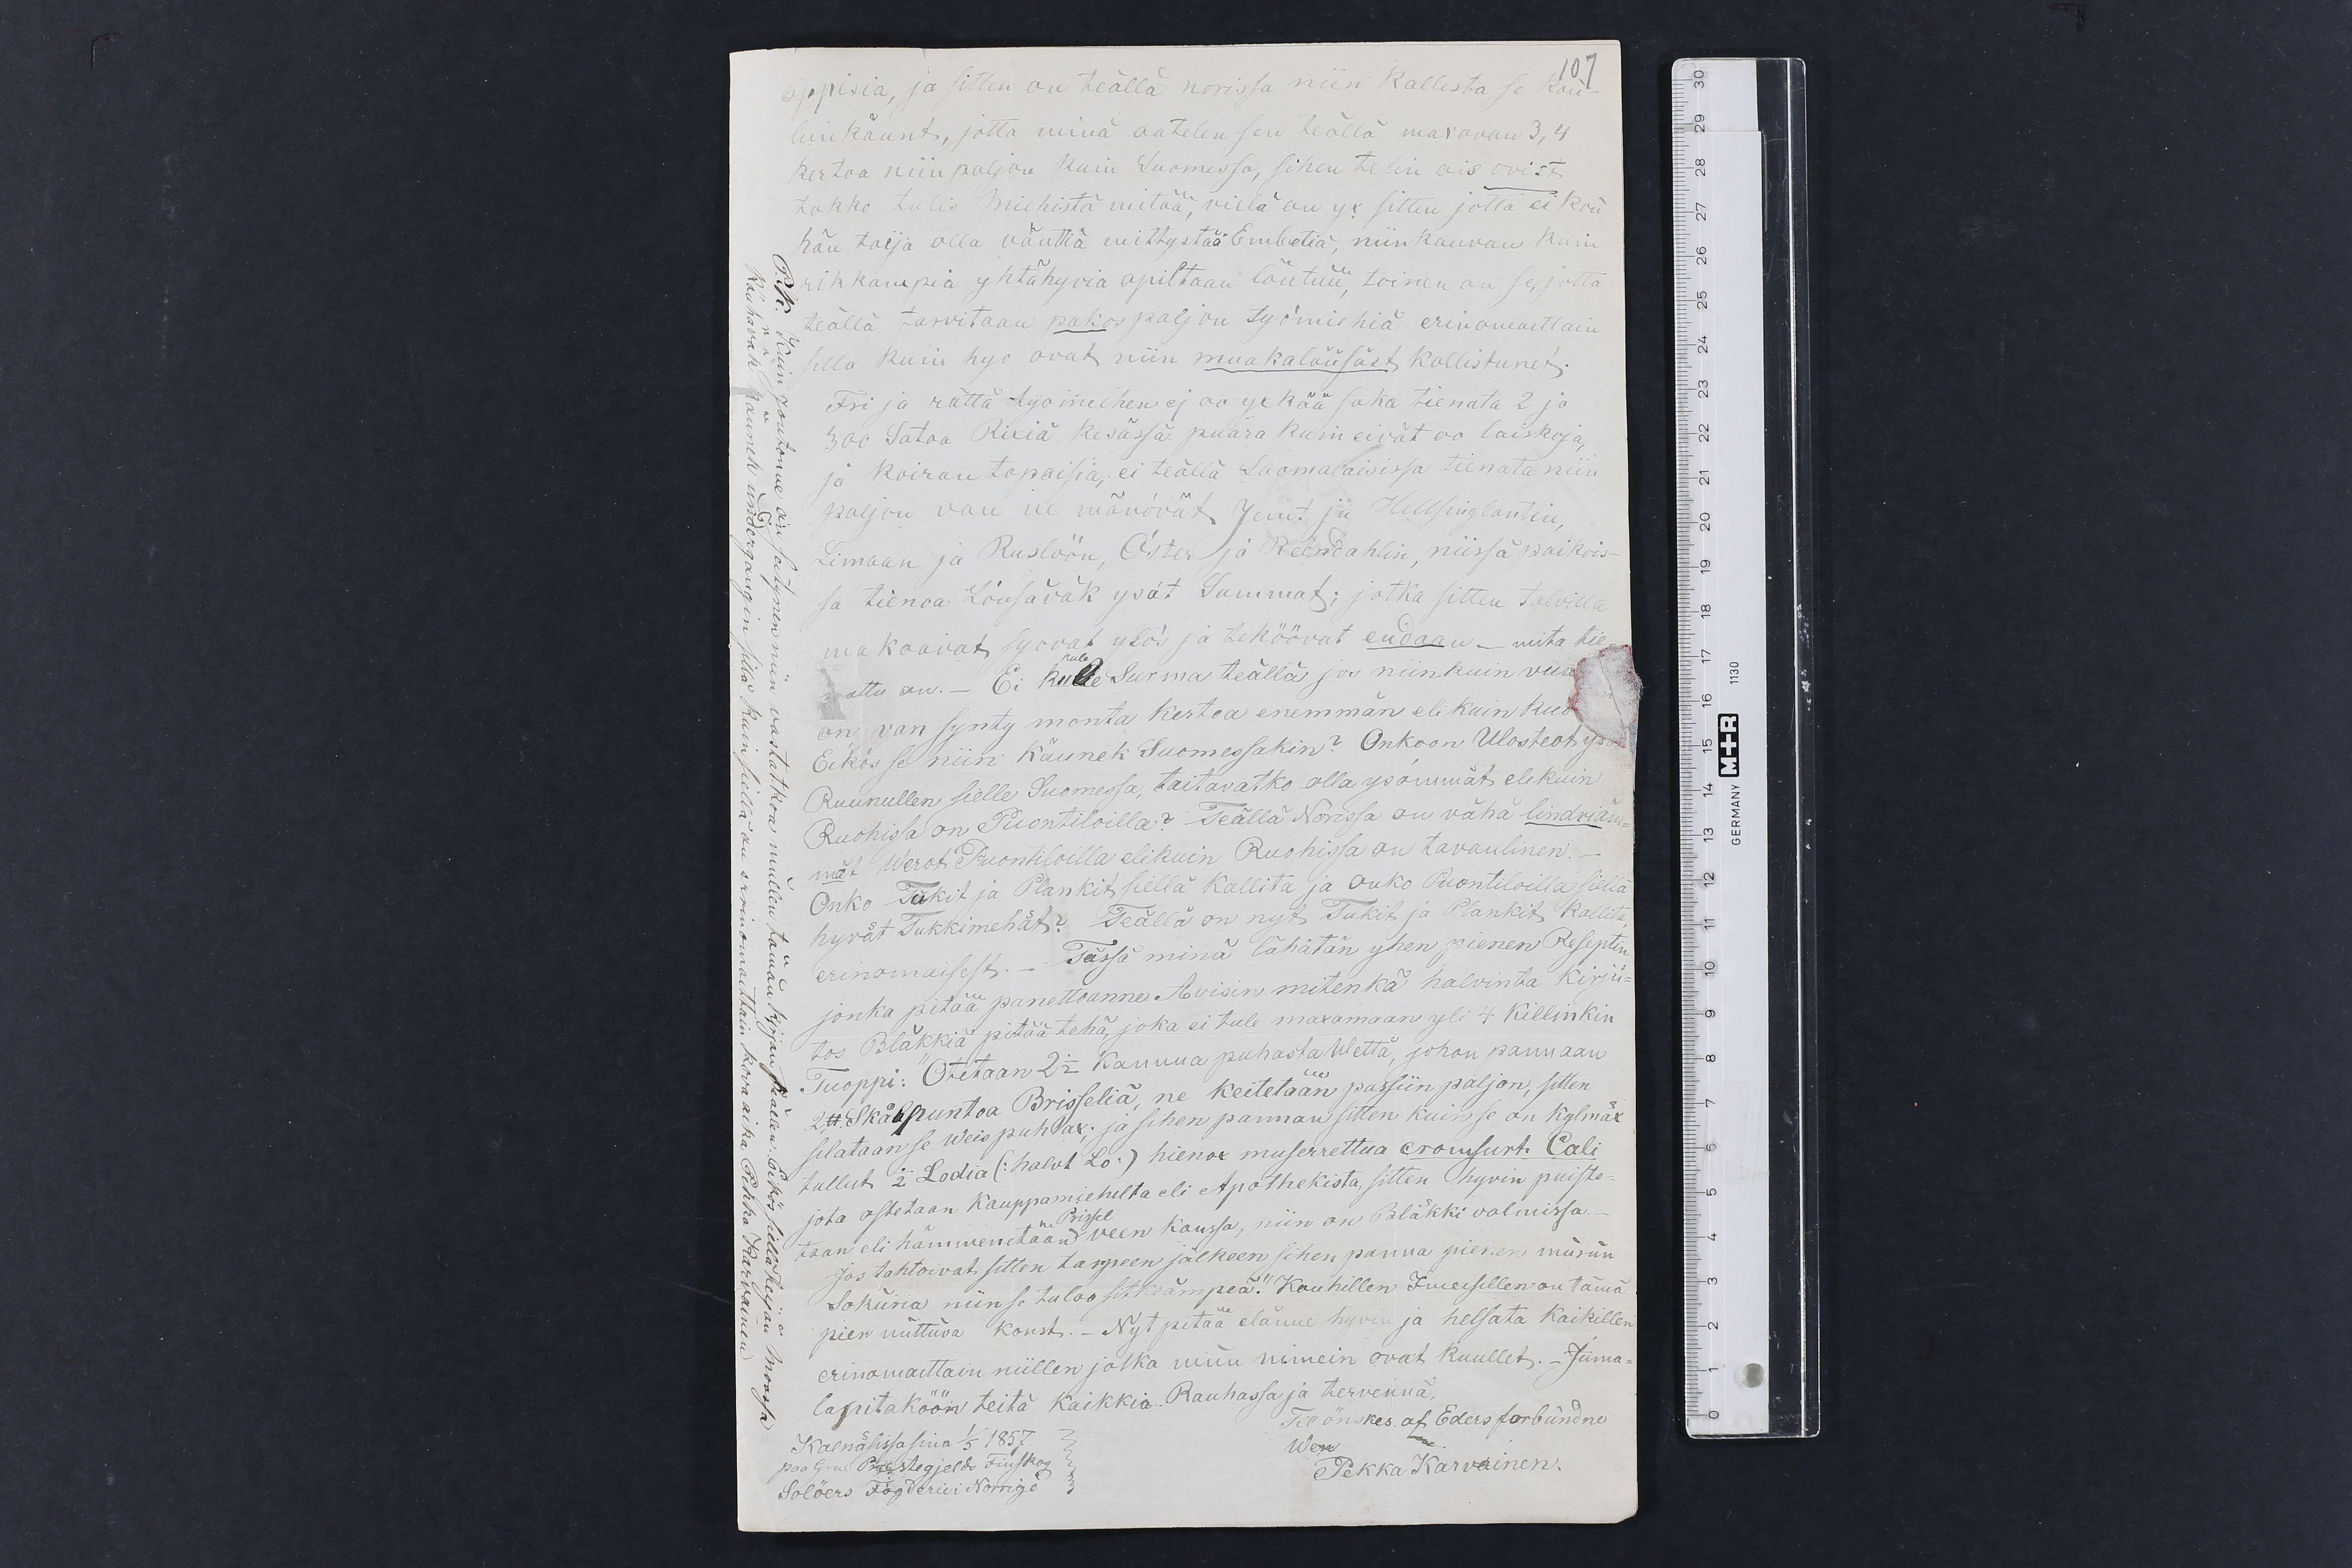 107
oppisia, ja sitten on teällä norissa niin Kallista se Kou-
lunkäunt, jotta minä aatelen sen teällä maxavan 3, 4
kertoa niin paljon kuin Suomessa, sihen telin ois ovist
takko tulis Miehistä mitää, vielä on yx sitten jotta ei kou
hän taija olla väuttiä mittystää Embetiä, niinkauvan kuin
rikkampia yhtähyvia opiltaan löutuu, toinen on se, jotta
teällä tarvitaan pakos paljon työmiehiä erinomaittain
silla kuin hyo ovat niin muakalöusäst kallistunet.
Fri ja rättä tyomeihen ej oo yxkää saka tienata 2 ja
300 Satoa Rixiä kesässä puara kuin eivät oo laiskoja,
ja koiran topaisia, ei teällä Suomalaisissa tienata niin
paljon van ne mänövät Jemt ja Hellsinglantin,
Limaan ja Ruslöön, Öster ja Reendahlin, niissä paikois-
sa tienoa Löusäväk ysöt Summat; jotka sitten talvilla
makoavat syovat ylös ja teköövat endaan — mita tie-
nattu on. — Ei kule Surma teällä jos niinkuin
on van synty monta kertoa enemmän elikuin
Eikös se niin käunek Suomessakin? Onkoon Ulosteot
Ruunullen sielle Suomessa, taitavatko olla ysömmät elikuin
Ruohissa on Puontiloilla? Teällä Norissa on vähä lindriäm-
mät Werot Puontiloilla elikuin Ruohissa on tavaulinen. —
Onko Tukit ja Plankit siellä kallita ja onko Puontiloilla siellä
hyvät Tukkimehät? Teällä on nyt Tukit ja Plankit kallita
erinomaisest. — Tässä minä lähätän yhen pienen Reseptin
jonka pitää panettoanne Avisin mitenkä halvinta Kirju=
tos Bläkkiä pitää tehä, joka ei tule maxamaan yli 4 killinkin
Tuoppi: "Otetaan 2½ Kannua puhasta Wettä, johon pannaan
2 ℔. Skålpuntoa Brisseliä, ne keitetään passiin paljon, sitten
silataan se weis puhtax; ja sihen pannan sitten kuin se on kylmäx
tullut ½ Lodia (: halvt Lo:) hienox muserrettua cromsurt. Cali
jota ostetaan Kauppamiehelta eli Apothekista, sitten hyvin puiste=
taan eli hämmenetään ne Prissel veen kanssa, niin on Bläkki valmissa. —
Jos tahtoivat sitten tarpeen jälkeen sihen panna pienen murun
Sokuria niin se tuloo sitkeämpeä." Kouhillen Imeisillen on tämä
pien nuttuva konst. — Nyt pitää elänne hyvin ja helsata kaikillen
erinomaittain niillen jotka minu nimein ovat kuullet. — Juma=
la pitaköön teitä kaikkia Rauhassa ja tervennä,
Til önskes af Eders forbundne
Wen
Pekka Karvainen.
Kalnäsissa sina 1/5 1857
paa Grue Præstegjelds Finskog
Solöers Fögderi i Norrige
P.S. Kuin jouttonne ain satynen niin vastatkoa mullen tämän kirjan peällen. Eikös siellä Keyän moassa
Räuhäväk käunek undergangin sillä kuin siellä on erinomaittain kova aika. Pekka Karvainen